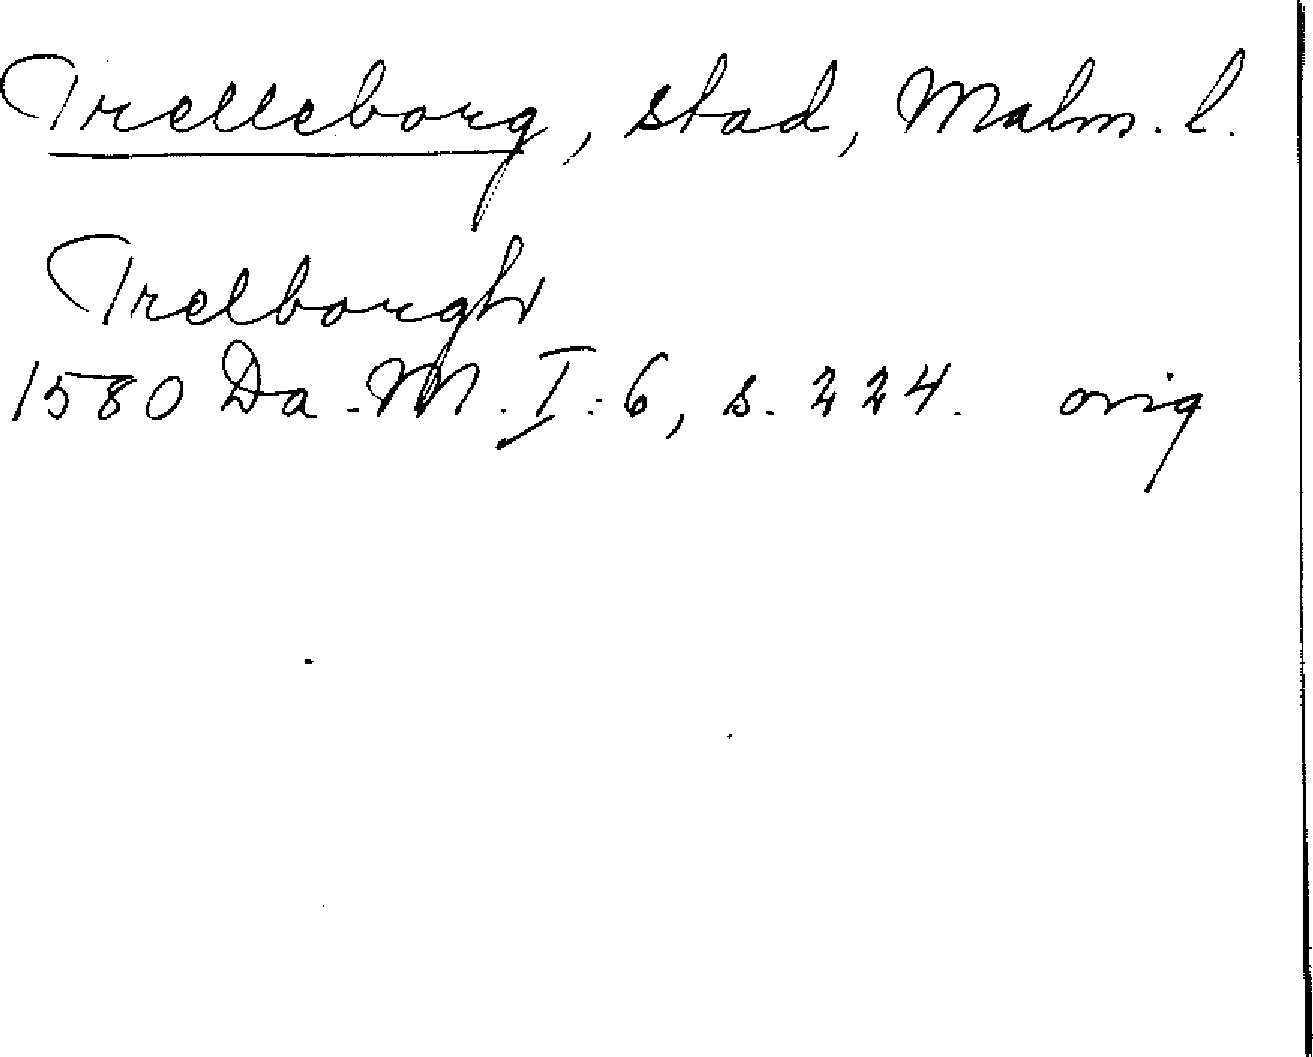 Trelleborg, stad, Malm. l.
Trelborgh
1580 Da. M. I: 6, s. 224. orig